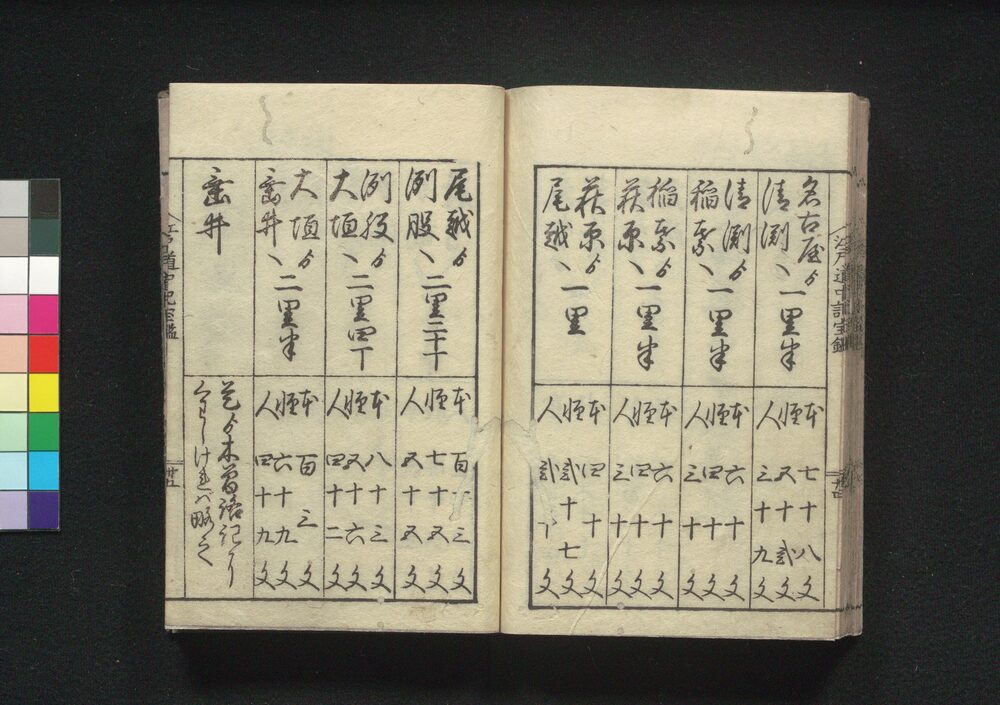 名古屋ゟ
清洲へ一里半
本七十八文
軽五十弐文
人三十九文
清洲ゟ
稲葉へ一里半
本六十文
軽四十文
人三十文
稲葉ゟ
萩原へ一里半
本六十文
軽四十文
人三十文
萩原ゟ
尾越へ一里
本四十文
軽弐十七文
人弐十文
江戸道中記宝鑑
廿四
尾越ゟ
洲股へ二里三十丁
本百十三文
軽七十五文
人五十五文
洲股ゟ
大垣へ二里四丁
本八十三文
軽五十六文
人四十二文
大垣ゟ
垂井へ二里半
本百三文
軽六十九文
人四十九文
垂井
是ゟ木曽路記に
くわしけれバ略之
江戸道中記宝鑑
廿五